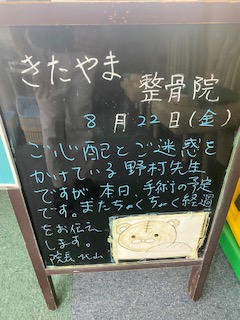 きたやま
整骨院
8月22日(金)
ご心配とご迷惑を
かけている野村先生
ですが本日、手術の予定
です。またちょくちょく経過
をお伝え
します。
院長 北山